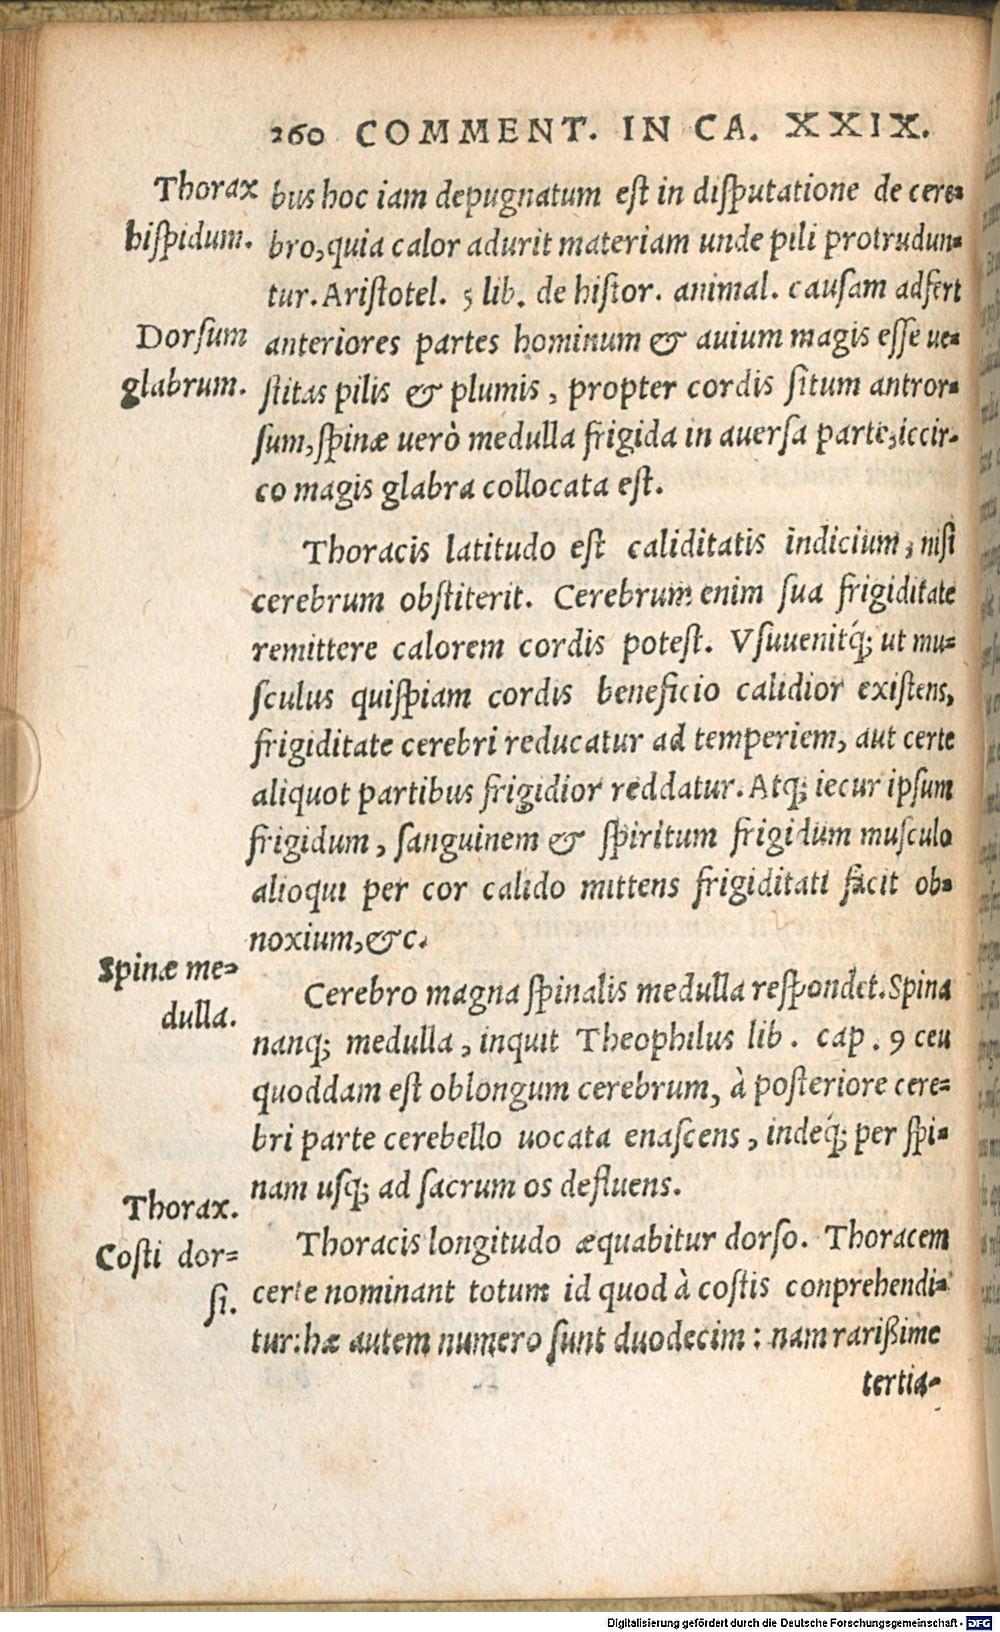 260 COMMENT. IN CA. XXIX.
Thorax
hiſpidum.
bus hoc iam depugnatum eſt in diſputatione de cere=
bro, quia calor adurit materiam unde pili protrudun=
tur. Ariſtotel. 5 lib. de hiſtor. animal. cauſam adfert
Dorſum
glabrum.
anteriores partes hominum & auium magis eſſe ue=
ſtitas pilis & plumis, propter cordis ſitum antror=
ſum, ſpinæ uerò medulla frigida in auerſa parte, iccir=
co magis glabra collocata eſt.
Thoracis latitudo eſt caliditatis indicium, niſi
cerebrum obſtiterit. Cerebrum enim ſua frigiditate
remittere calorem cordis poteſt. Vſuuenitq́; ut mu=
ſculus quiſpiam cordis beneficio calidior exiſtens,
frigiditate cerebri reducatur ad temperiem, aut certe
aliquot partibus frigidior reddatur. Atq; iecur ipſum
frigidum, ſanguinem & ſpiritum frigidum muſculo
alioqui per cor calido mittens frigiditati facit ob=
noxium, &c.
Spinæ me=
dulla.
Cerebro magna ſpinalis medulla reſpondet. Spina
nanq; medulla, inquit Theophilus lib. cap. 9 ceu
quoddam eſt oblongum cerebrum, à poſteriore cere=
bri parte cerebello uocata enaſcens, indeq́; per ſpi=
nam uſq; ad ſacrum os defluens.
Thorax.
Coſti dor=
ſi.
Thoracis longitudo æquabitur dorſo. Thoracem
certe nominant totum id quod à coſtis conprehendi=
tur: hæ autem numero ſunt duodecim: nam rarißime
tertia=
Digitalisierung gefördert durch die Deutsche Forschungsgemeinschaft - DFG